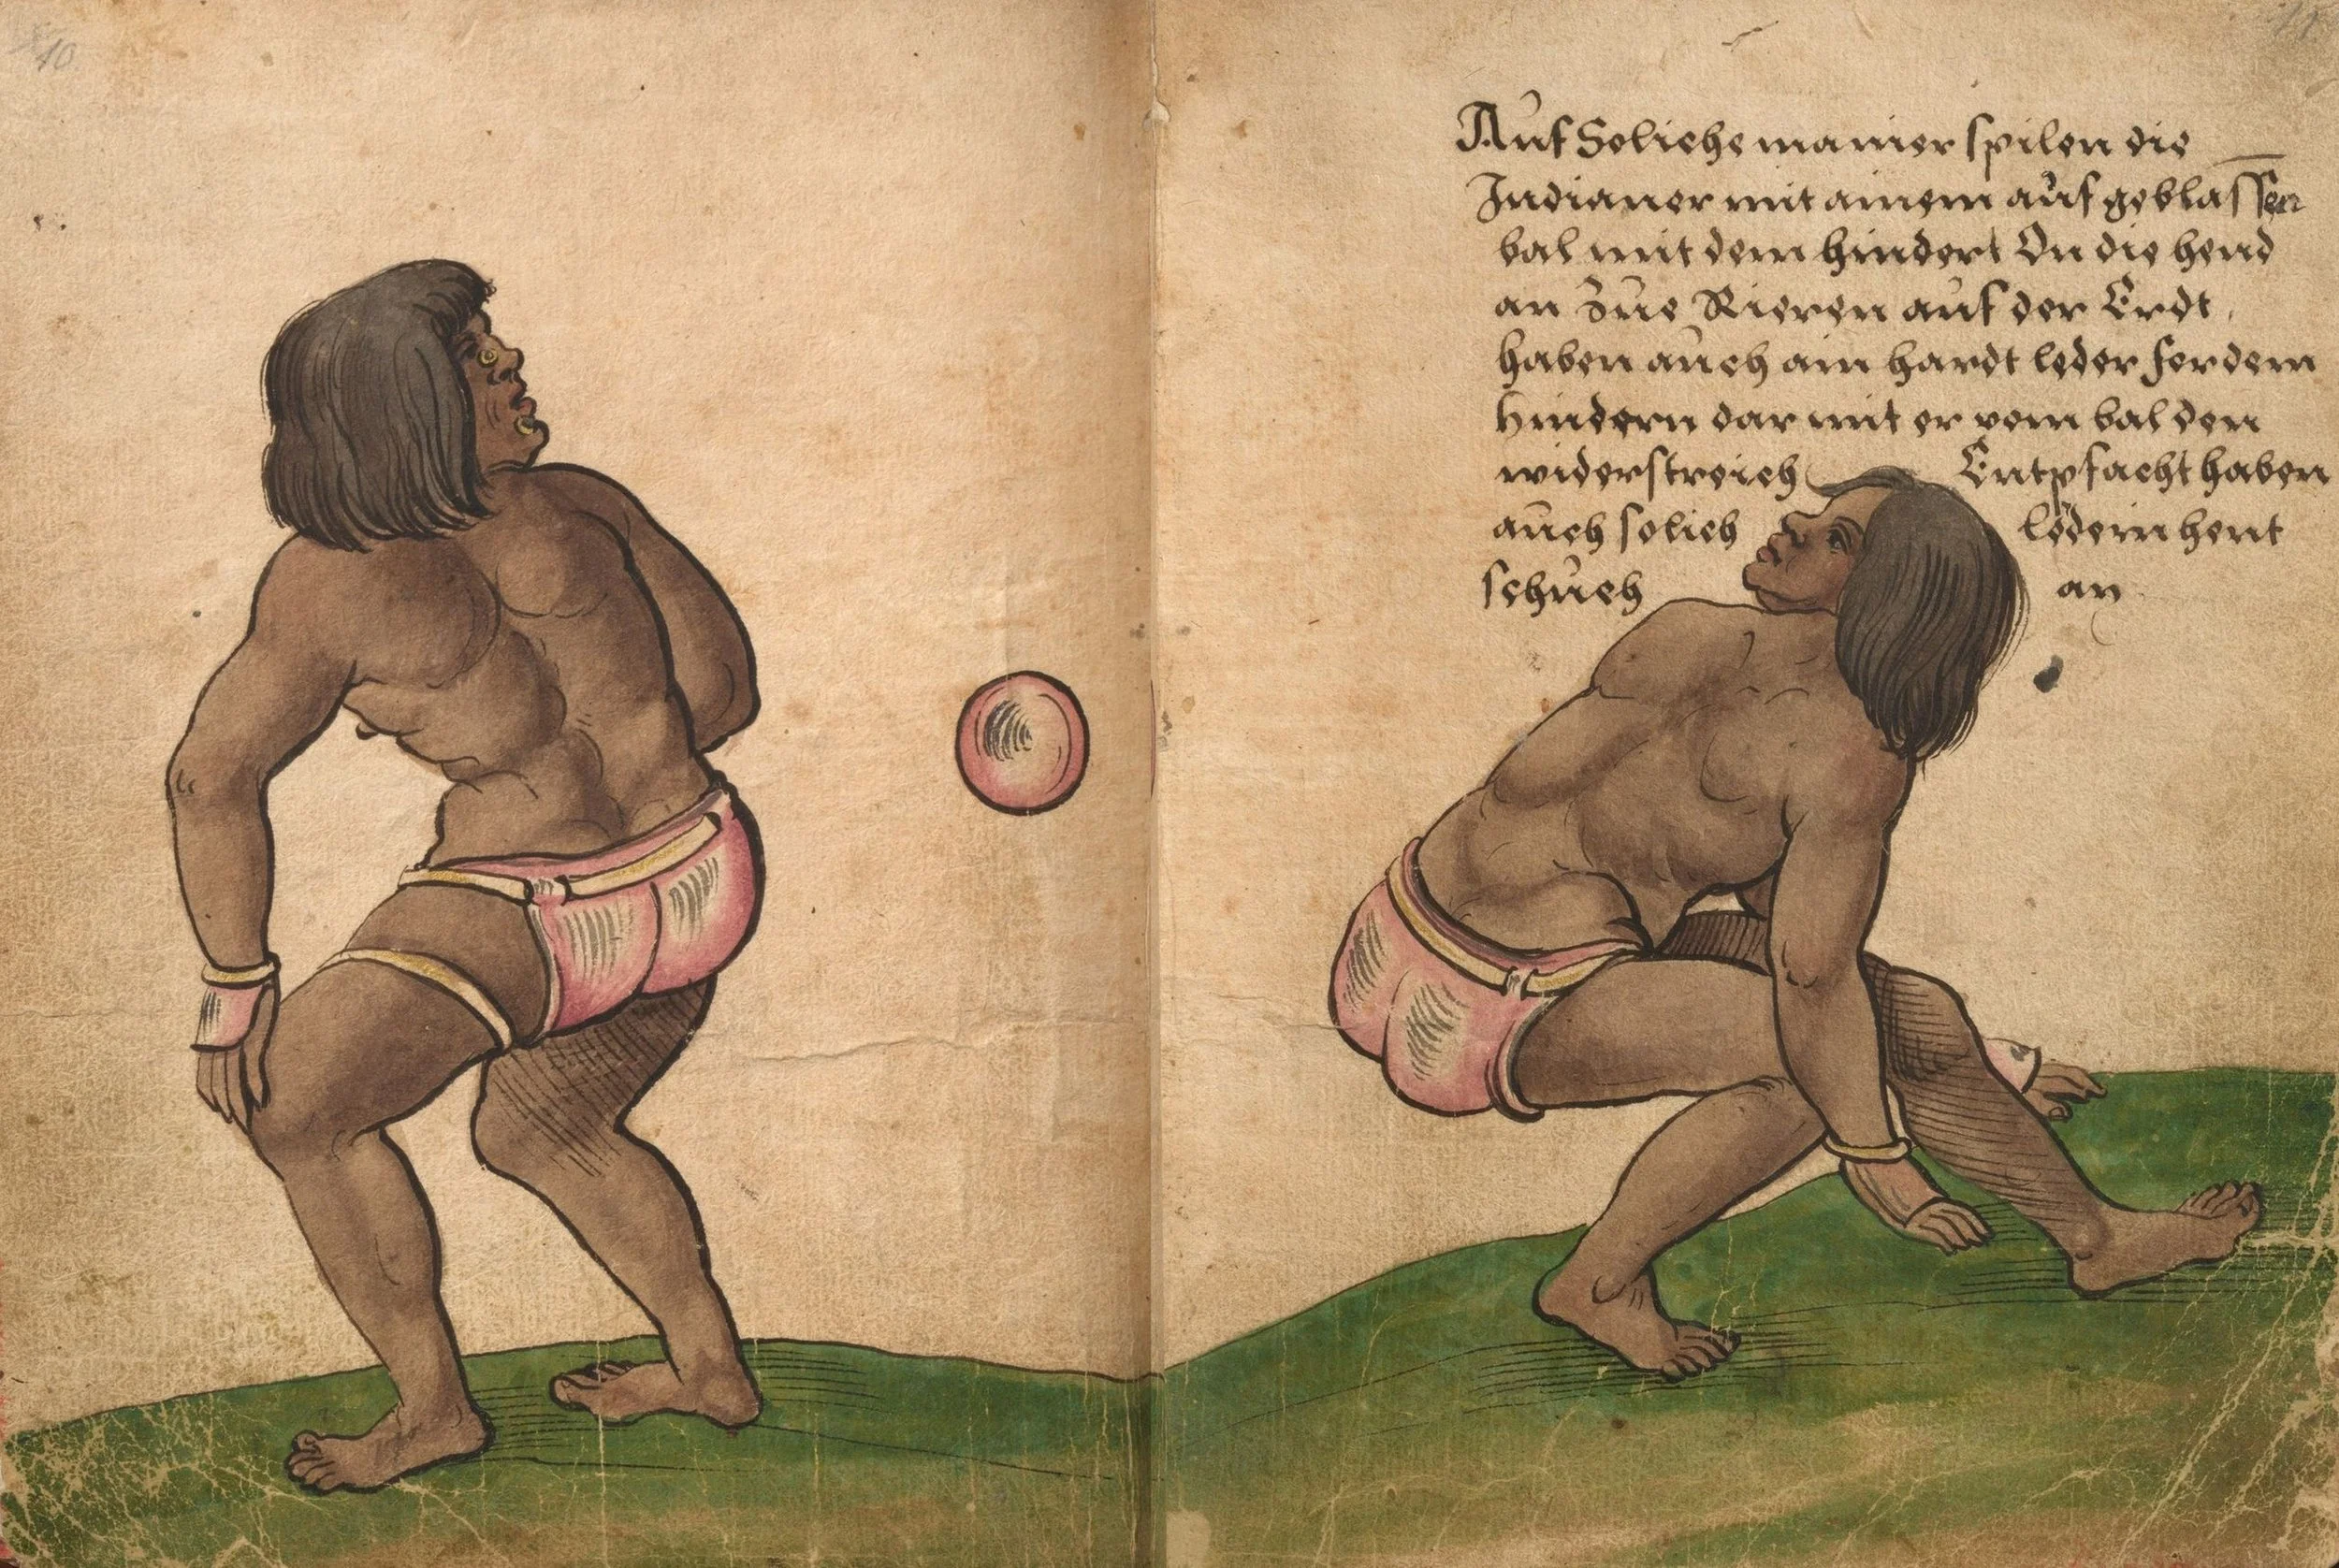 10
11
Auf Soliche manier spilen die
Indianer mit ainem aufgeblassen
bal mit dem hindert On die hend
an Zue Rieren auf der Erdt
haben auch ain hardt leder fordem
hindern dar mit er vom bal den
widerstreich Entpfacht haben
auch solich ledern hent
schuch an